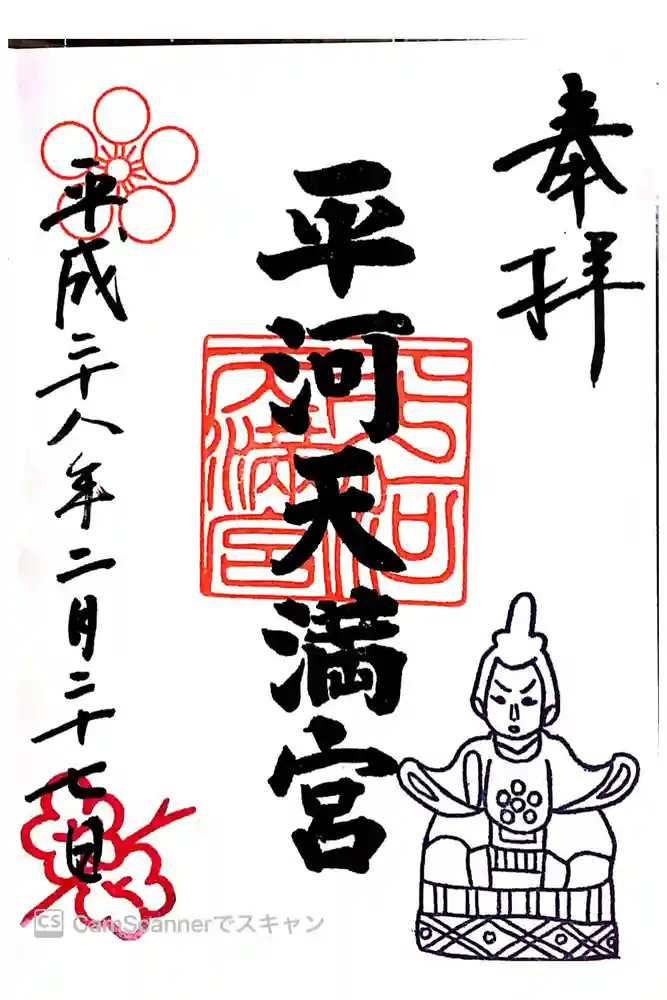 奉拝
平河天満宮
平成二十八年二月二十七日
CS CamScannerでスキャン